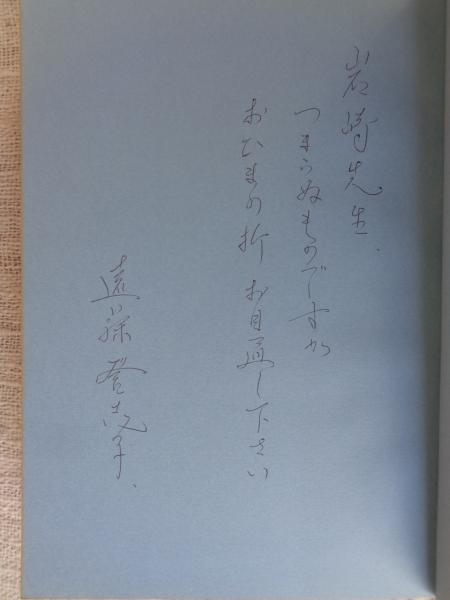 岩崎先生、
つまらぬものですが
おひまの折 お目通し下さい
遠藤登志子、